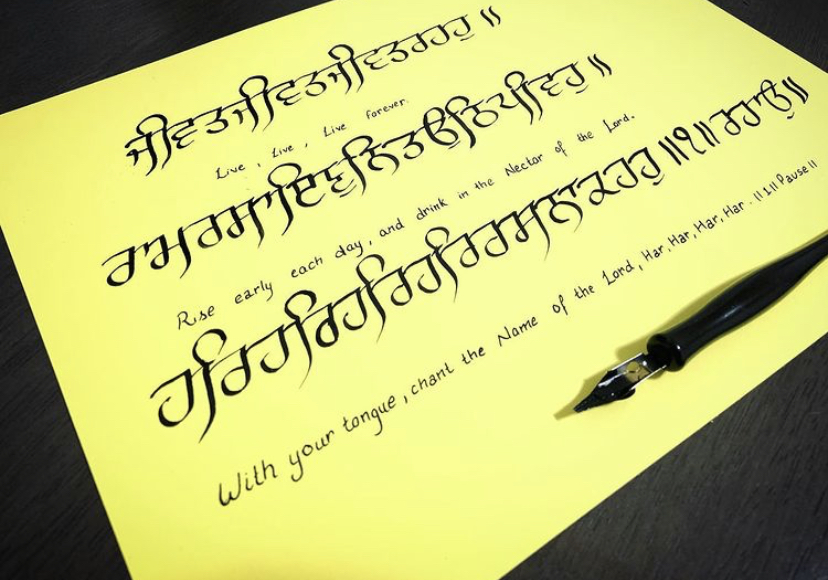 ਜੀਵਤਜੀਵਤਜੀਵਤਰਹਹੁ ॥
Live, Live, Live forever.
ਰਾਮਰਸਾਇਣੁਨਿਤਉਠਿਪੀਵਹੁ ॥
Rise early each day, and drink in the Nector of the Lord.
ਹਰਿਹਰਿਹਰਿਹਰਿਰਸਨਾਕਹਹੁ ॥੧॥ ਰਹਾਉ ॥
With your tongue, chant the Name of the Lord, Har, Har, Har, Har. ||1|| Pause ||